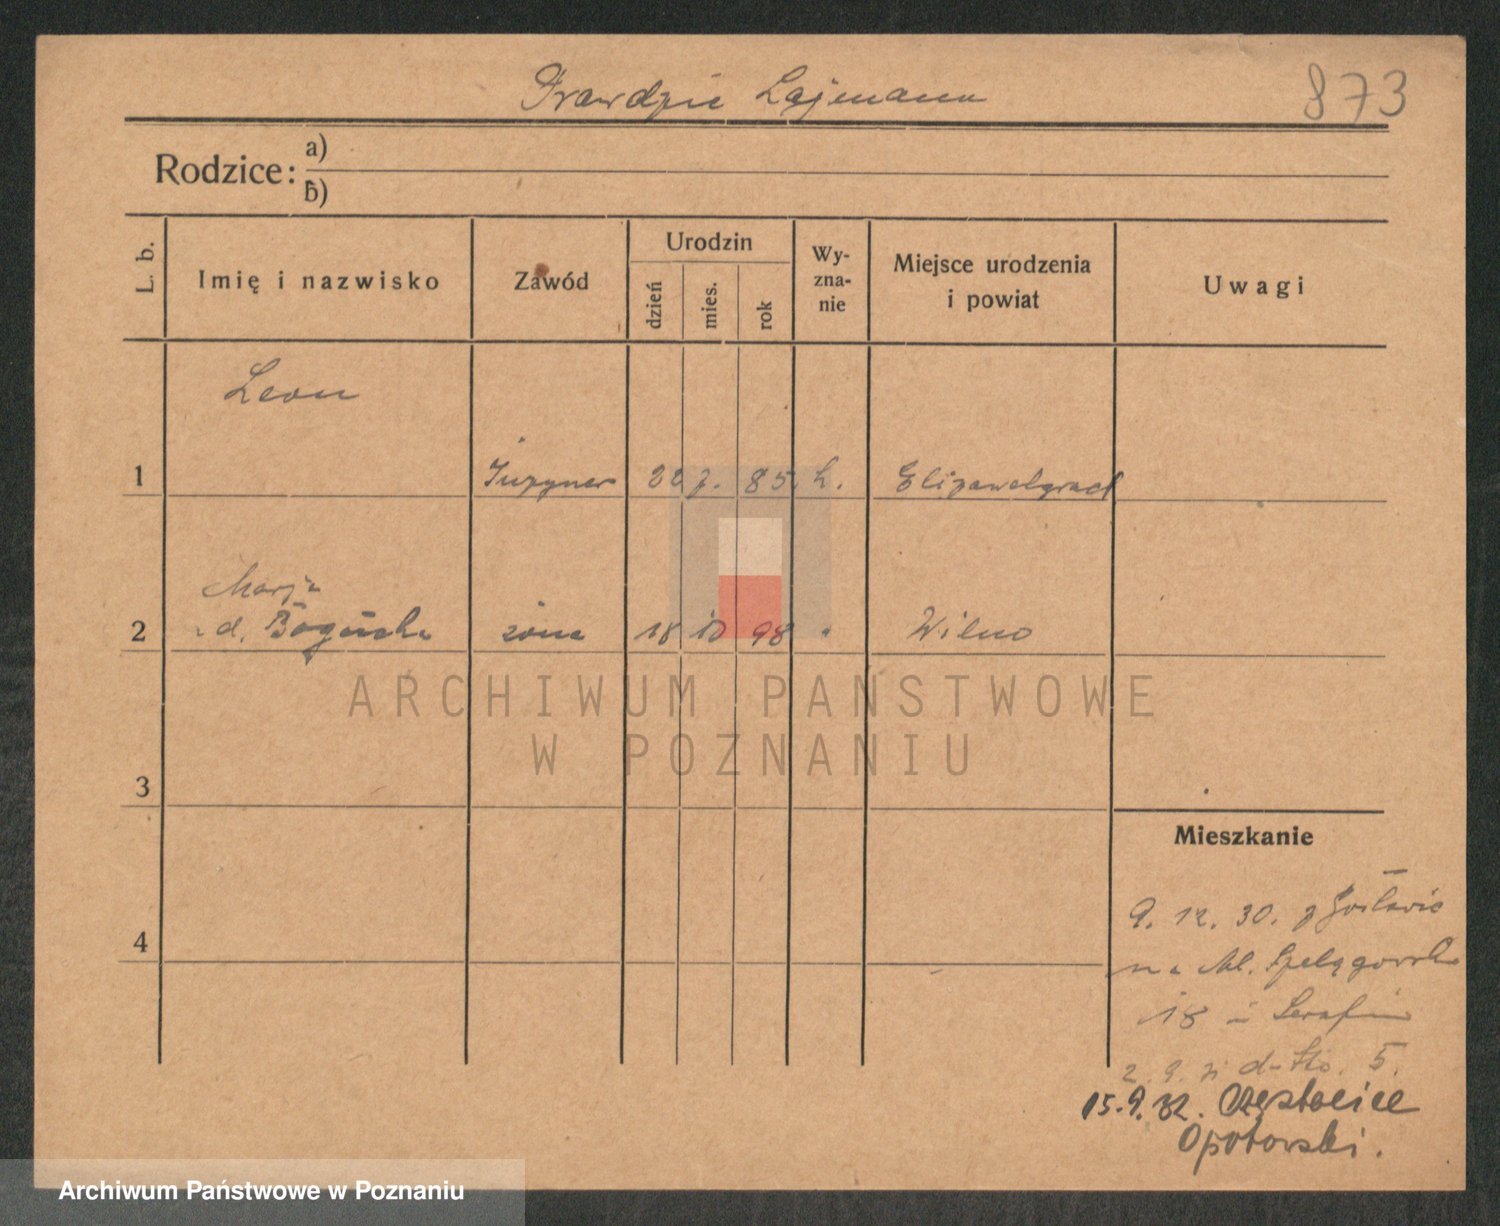 Prawdzic Lajmann
873
Rodzice: a)
b)
L. b.
Imię i nazwisko
Zawód
Urodzin
dzień
mies.
rok
Wy-
zna-
nie
Miejsce urodzenia
i powiat
Uwagi
1
Leon
Inżynier 22 7. 85. k. Elizawetgrad
2
Marja
z d. żona 18 10 98 " Wilno
ARCHIWUM PAŃSTWOWE
W POZNANIU
3
4
Mieszkanie
9. 12. 30. z Gosławic
na Mł. Szelągowska
18 u Serafin
2. 9. 31 d-tto. 5.
15.9.32. Częstocice
Opatowski.
Archiwum Państwowe w Poznaniu